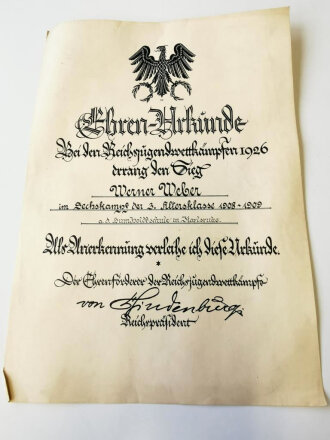 Ehren-Urkunde
Bei den Reichsjugendwettkämpfen 1926
errang den Sieg
Werner Weber
im Sechskampf der 3. Altersklasse 1908-1909
a. d. Humboldtschule in Karlsruhe
Als Anerkennung verleihe ich diese Urkunde.
Der Ehrenförderer der Reichsjugendwettkämpfe
von Hindenburg
Reichspräsident